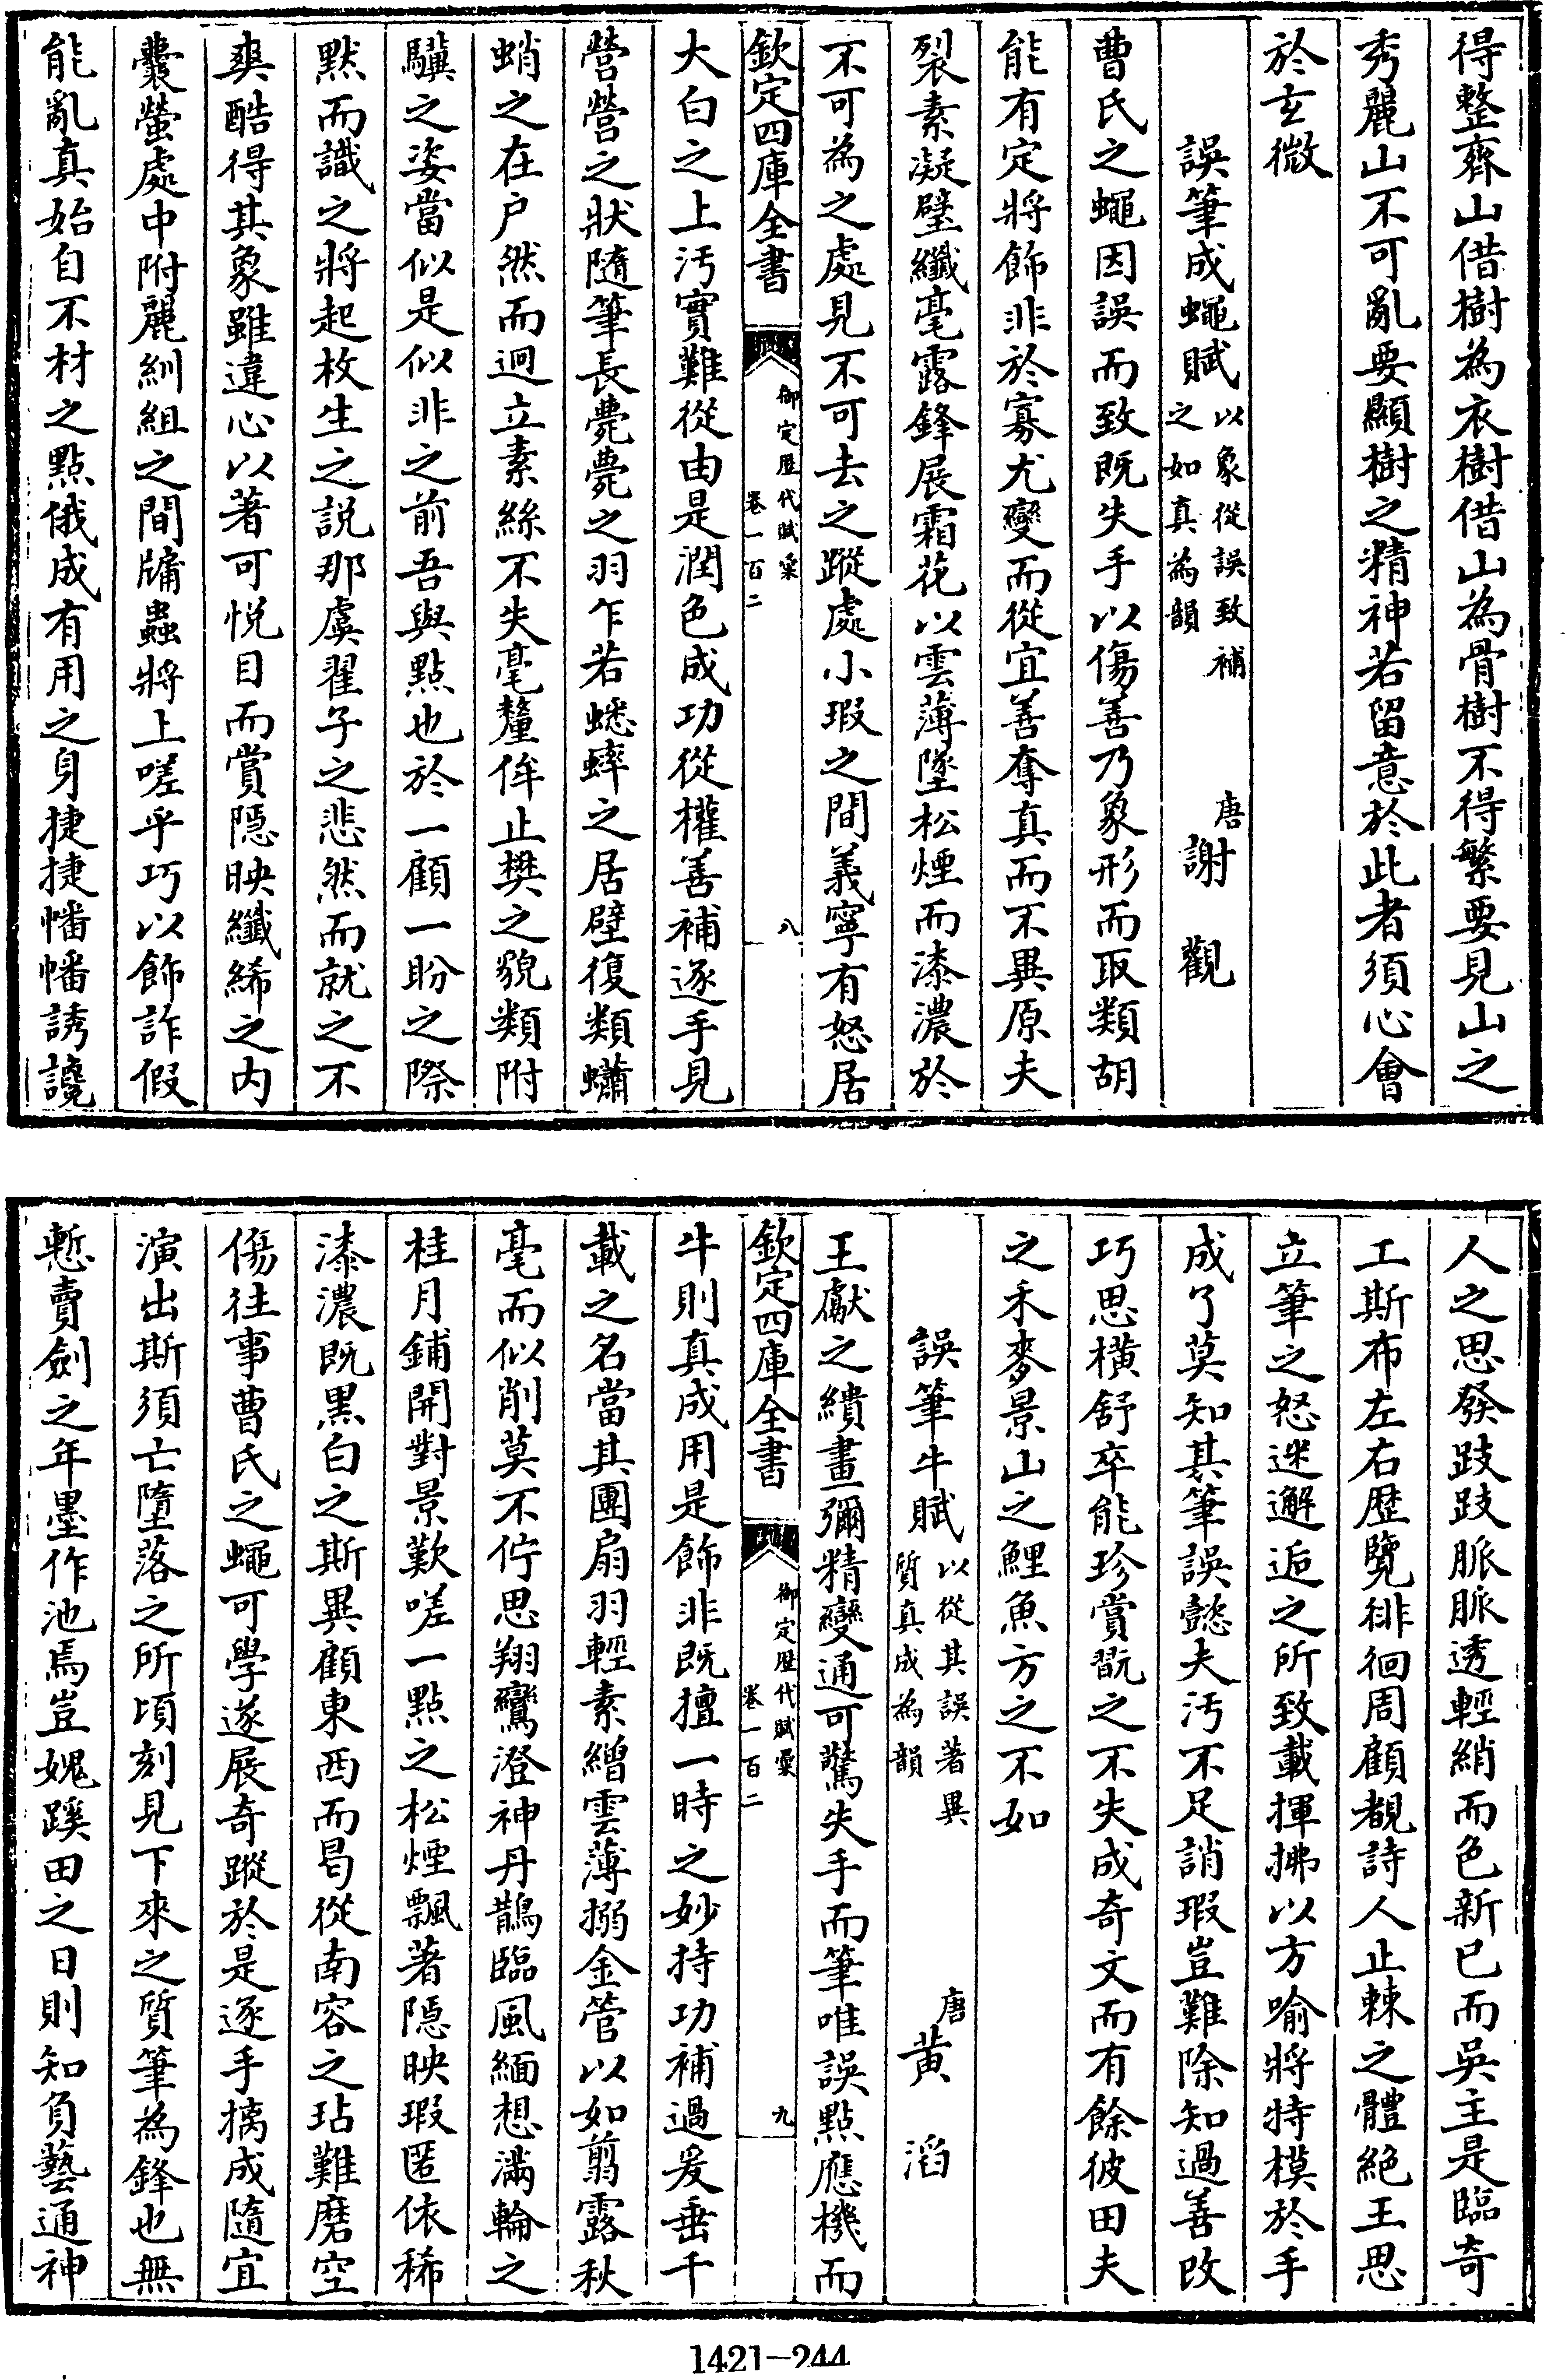 得整齊山借樹為衣樹借山為骨樹不得繁要見山之
秀麗山不可亂要顯樹之精神若留意於此者須心會
於玄微
誤筆成蠅賦以象從誤致補之如真為韻 唐謝觀
曹氏之蠅因誤而致既失手以傷善乃象形而取類胡
能有定將飾非於寡尤變而從宜善奪真而不異原夫
裂素凝壁纖毫露鋒展霜花以雲薄墜松煙而漆濃於
不可為之處見不可去之蹤處小瑕之間義寧有怒居
欽定四庫全書 御定歷代賦彙 卷一百二 八
大白之上汚實難從由是潤色成功從權善補逐手見
營營之狀隨筆長薨薨之羽乍若蟋蟀之居壁復類蠨
蛸之在户然而迥立素絲不失毫釐侔止樊之貌類附
驥之姿當似是似非之前吾與點也於一顧一盼之際
黙而識之將起枚生之説那虞翟子之悲然而就之不
爽酷得其象雖違心以著可悦目而賞隱映纖絺之内
囊螢處中附麗紃組之間牗蟲將上嗟乎巧以飾詐假
能亂真始自不材之點俄成有用之身捷捷幡幡誘讒
人之思發跂跂脈脈透輕綃而色新已而吳主是臨奇
工斯布左右歴覽徘徊周顧覩詩人止棘之體絶王思
立筆之怒迷邂逅之所致載揮拂以方喻將特模於手
成了莫知其筆誤懿夫汚不足誚瑕豈難除知過善改
巧思橫舒卒能珍賞翫之不失成奇文而有餘彼田夫
之禾麥景山之鯉魚方之不如
誤筆牛賦以從其誤著異質真成為韻 唐黃滔
王獻之繢畫彌精變通可驚失手而筆唯誤點應機而
欽定四庫全書 御定歷代賦彙 卷一百二 九
牛則真成用是飾非既擅一時之妙持功補過爰垂千
載之名當其團扇羽輕素繒雲薄搦金管以如翦露秋
毫而似削莫不佇思翔鸞澄神丹鵲臨風緬想滿輪之
桂月鋪開對景歎嗟一點之松煙飄著隱映瑕匿依稀
漆濃既黒白之斯異顧東西而曷從南容之玷難磨空
傷往事曹氏之蠅可學遂展奇蹤於是逐手摛成隨宜
演出斯須亡墮落之所頃刻見下來之質筆為鋒也無
慙賣劍之年墨作池焉豈媿蹊田之日則知負藝通神
1421-244